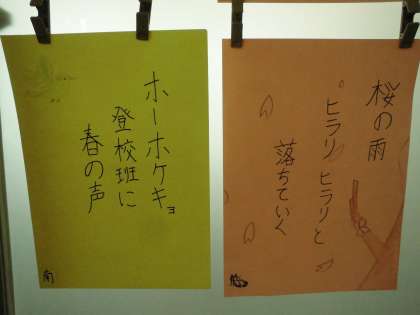 桜の雨
ヒラリ ヒラリと
落ちていく
ホーホケキョ
登校班に
春の声